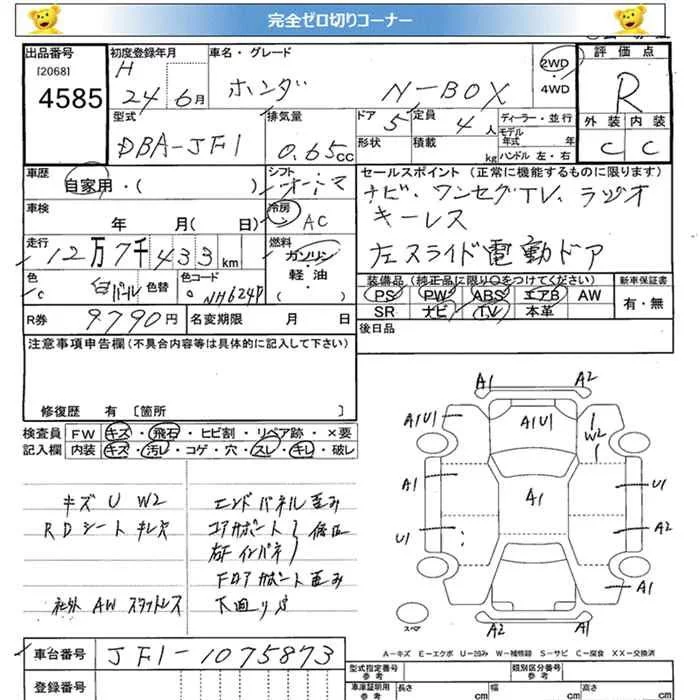 完全ゼロ切りコーナー
出品番号
[2068]
4585
初度登録年月
H
24年 6月
車名・グレード
ホンダ N-BOX
2WD
4WD
評価点
R
外装 内装
C C
型式
DBA-JF1
排気量
0.65cc
ドア 5
定員 4人
形状
積載 kg
ディーラー・並行
モデル年式 年
ハンドル 左・右
車歴
自家用・( )
シフト
オートマ
車検
年 月( 日)
冷房
AC
走行
12万7千433km
燃料
ガソリン
軽油
( )
色
白パール
色替
色コード
NH624P
R券 9790円
名変期限 月 日
セールスポイント (正常に機能するものに限ります)
ナビ、ワンセグTV、ラジオ
キーレス
左スライド電動ドア
装備品 (純正品に限り○をつけてください)
新車保証書
PS PW ABS エアB AW
SR ナビ TV 本革
有・無
後日品
注意事項申告欄 (不具合内容等は具体的に記入して下さい)
修復歴 有 〔箇所 〕
検査員 FW キズ・飛石・ヒビ割・リペア跡・×要
記入欄 内装 キズ・汚レ・コゲ・穴・スレ・キレ・破レ
キズ U W2
RDシート キレ穴
社外 AW スタットレス
エンドパネル歪み
コアサポート 修正
右Fインパネ
Fロアサポート歪み
下回りS
A1 A2
A1U1 A1U1 W2
A1 A1 U1
U1 A2
A1
A1 A2
スペア
A-キズ E-エクボ U-凹み W-補修跡 S-サビ C-腐食 XX-交換済
車台番号 JF1-1075873
登録番号
型式指定番号
参考
類別区分番号
参考
車庫証明用
参考
長さ cm 幅 cm 高さ cm